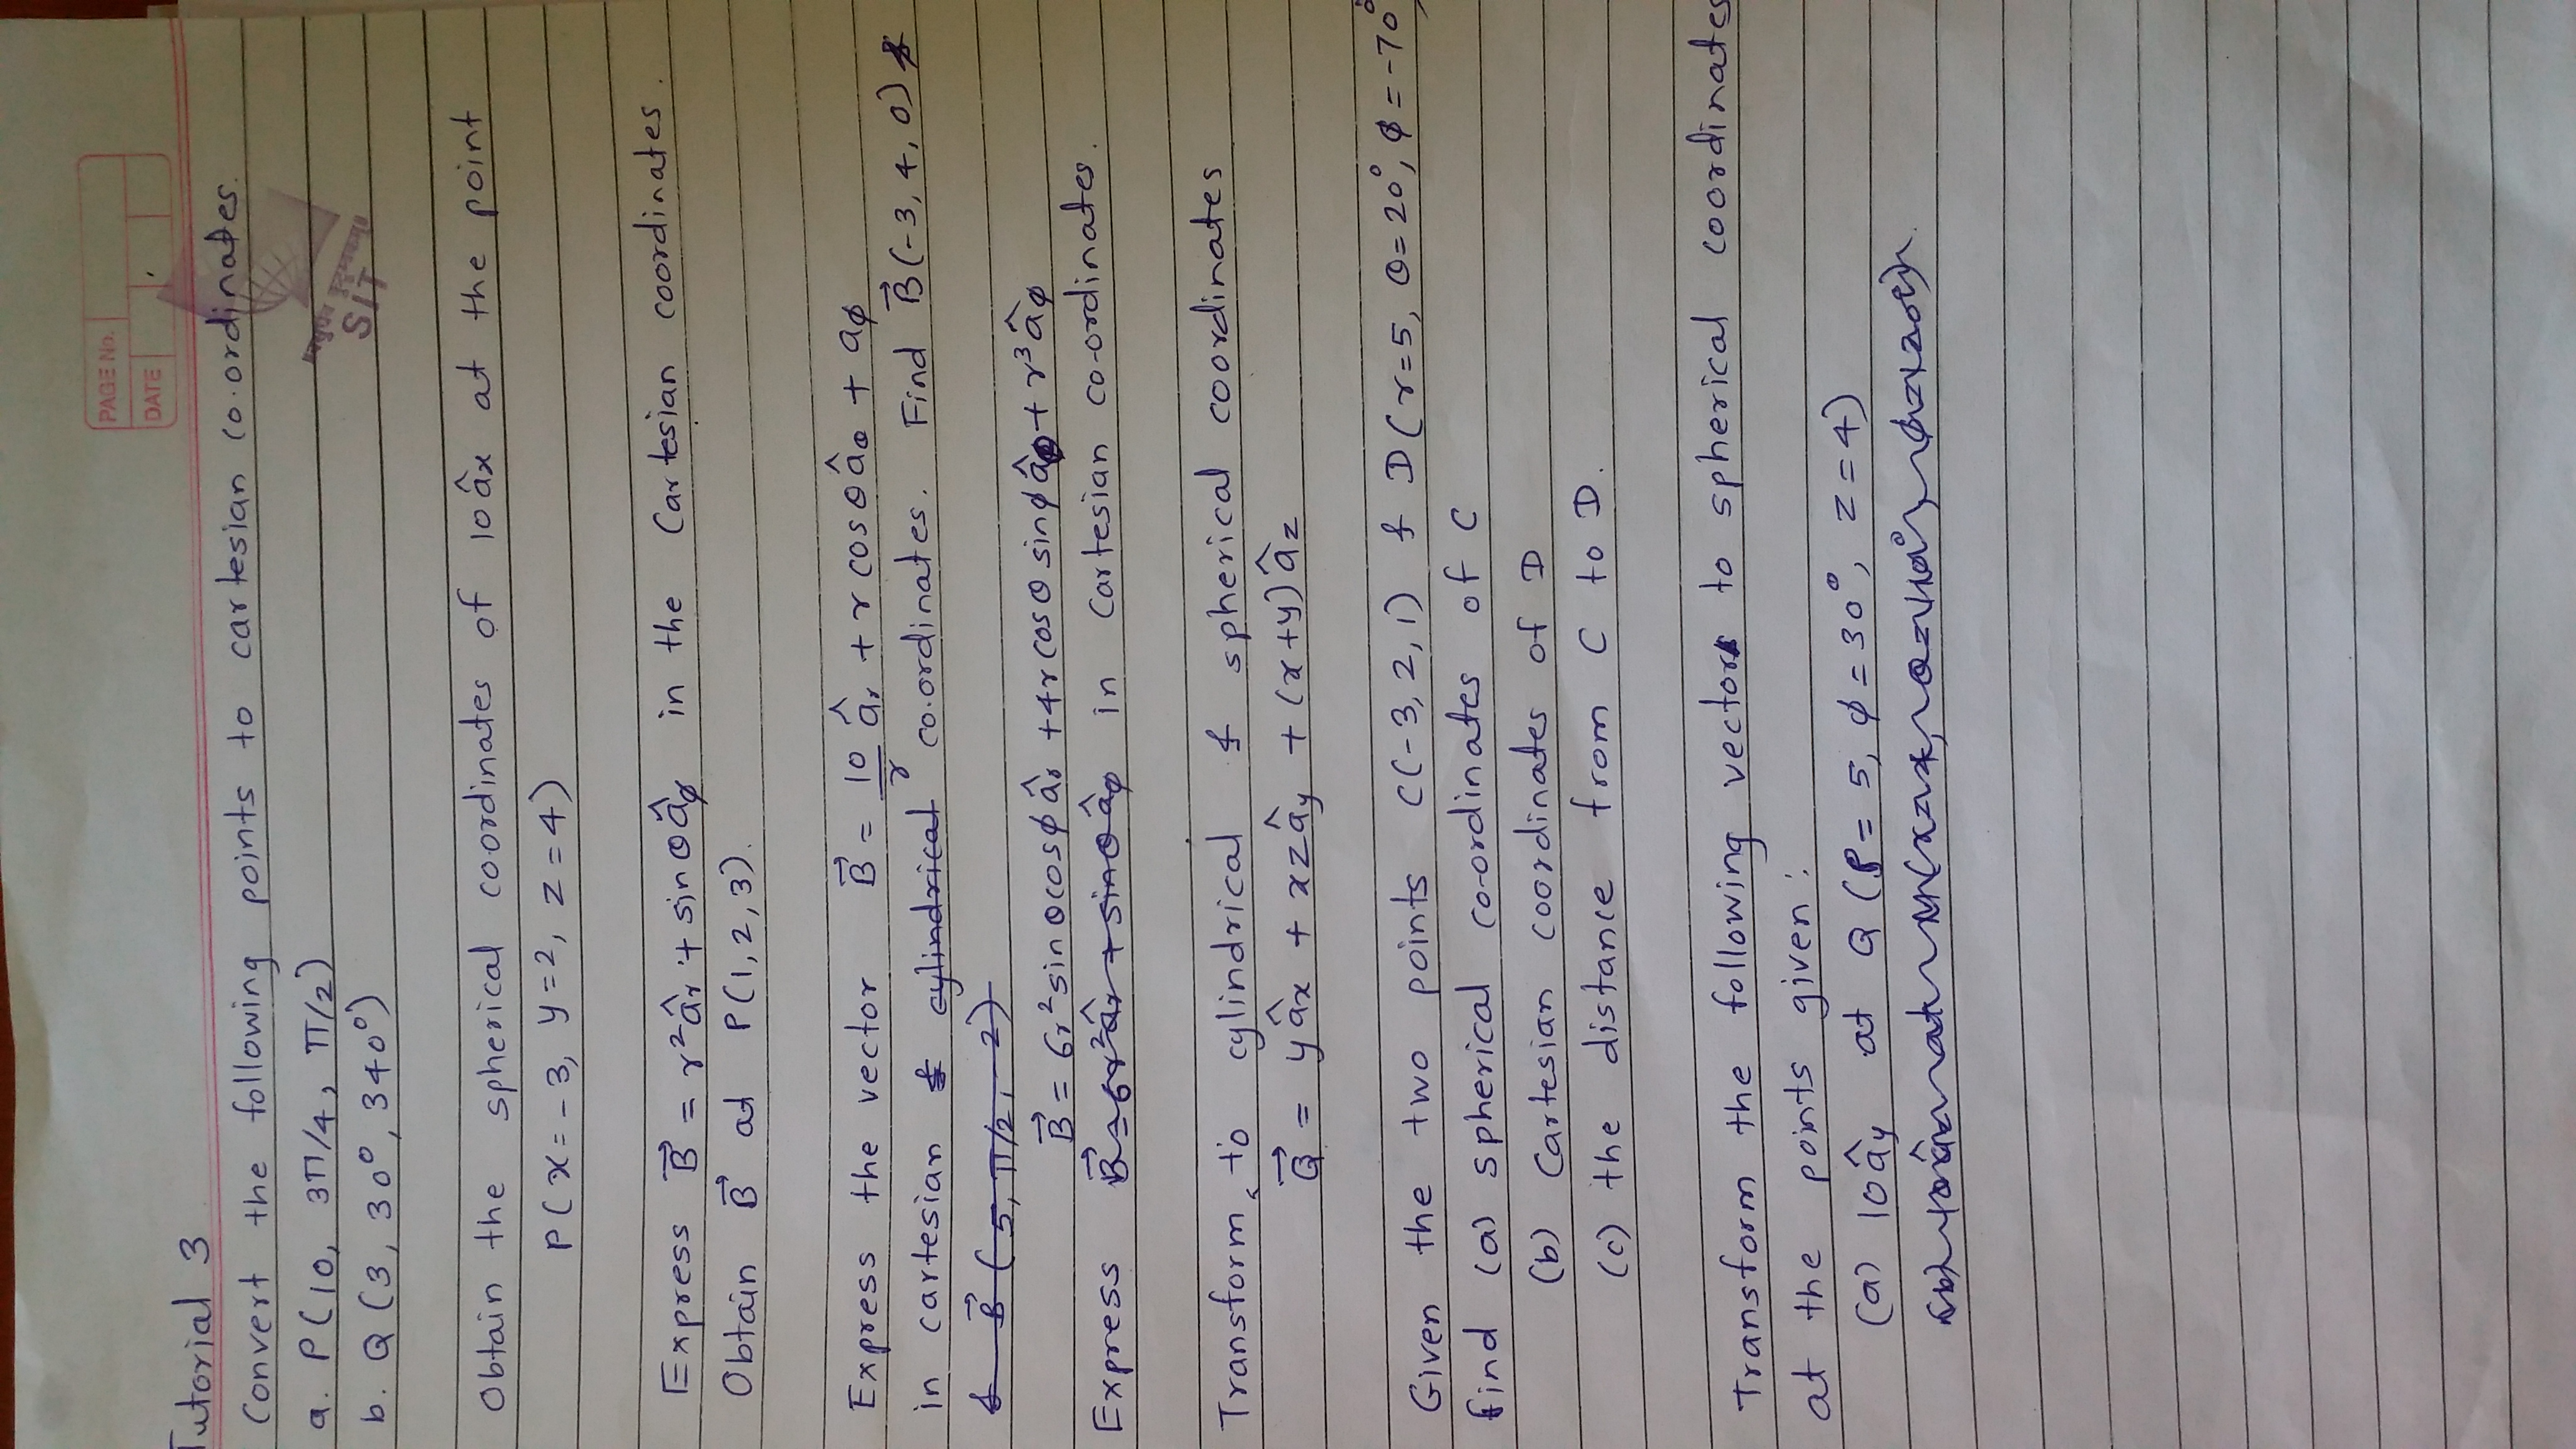 PAGE No.
DATE
Tutorial 3
Convert the following points to cartesian co.ordinates.
a. P(10, 3π/4, π/2)
b. Q (3, 30°, 340°)
SIT
Obtain the spherical coordinates of 10 âx at the point
P(x=-3, y=2, z=4)
Express B⃗ = r² âr + sinθ âφ in the Cartesian coordinates.
Obtain B⃗ at P(1,2,3).
Express the vector B⃗ = 10/r âr + r cosθ âθ + aφ
in cartesian & cylindrical co.ordinates. Find B⃗(-3, 4, 0) &
& B⃗ (5, π/2, -2)
B⃗ = 6r² sinθcosφ âr + 4r cosθ sinφ âθ + r³ âφ
Express B⃗ = 6r² âr + sinθ âφ in Cartesian co-ordinates.
Transform to cylindrical & spherical coordinates
Q⃗ = y âx + xz ây + (x+y) âz
Given the two points C(-3, 2, 1) & D(r=5, θ=20°, φ=-70°,
find (a) spherical co-ordinates of C
(b) Cartesian coordinates of D
(c) the distance from C to D.
Transform the following vector to spherical coordinates
at the points given:
(a) 10 ây at Q (ρ= 5, φ=30°, z=4)